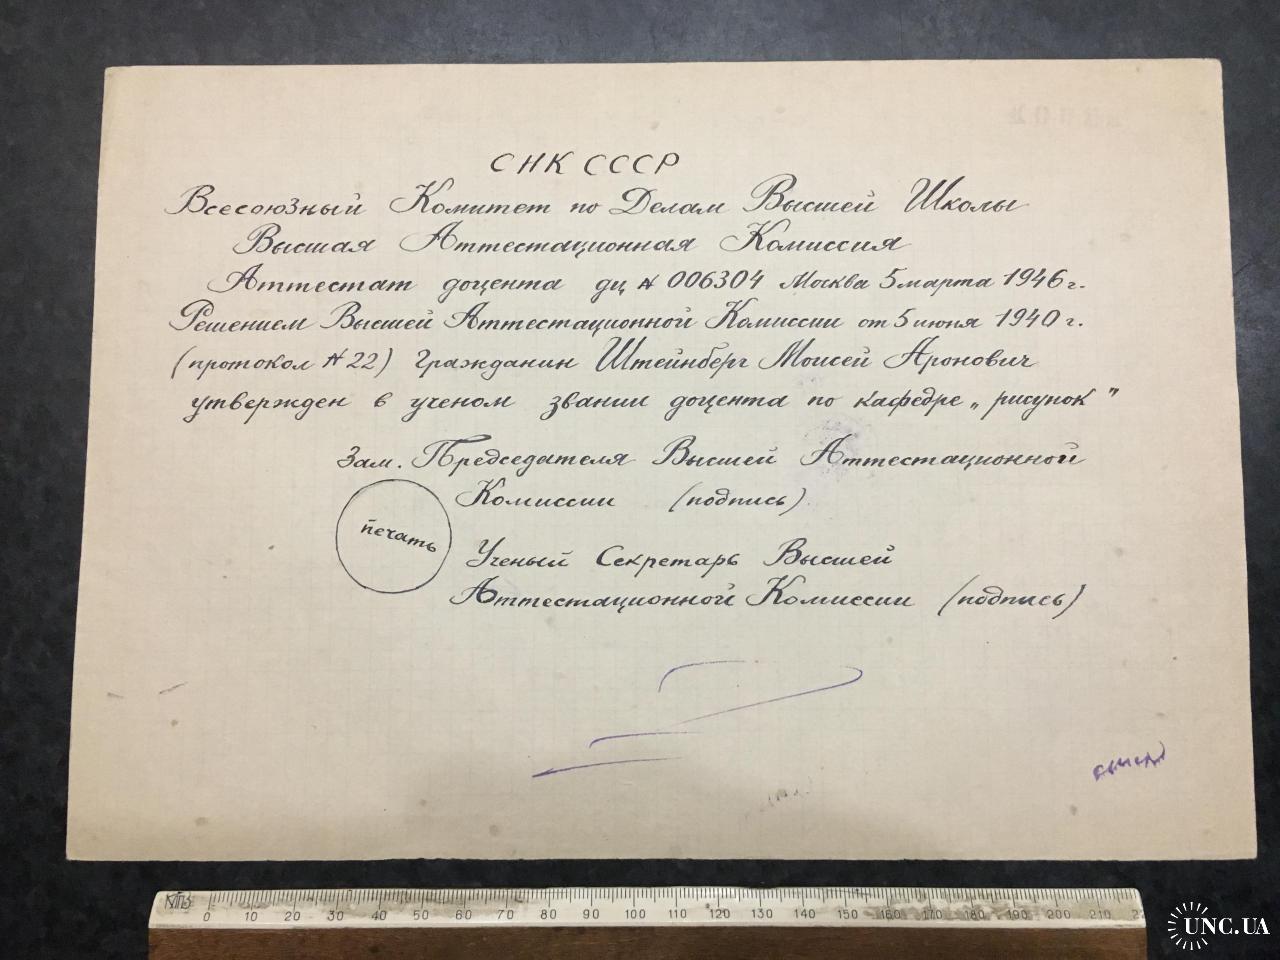 СНК СССР
Всесоюзный Комитет по Делам Высшей Школы
Высшая Аттестационная Комиссия
Аттестат доцента дц № 006304 Москва 5 марта 1946 г.
Решением Высшей Аттестационной Комиссии от 5 июня 1940 г.
(протокол № 22) гражданин Штейнберг Моисей Аронович
утвержден в ученом звании доцента по кафедре „рисунок"
Зам. Председателя Высшей Аттестационной
Комиссии (подпись)
печать
Ученый Секретарь Высшей
Аттестационной Комиссии (подпись)
0 10 20 30 40 50 60 70 80 90 100 110 120 130 140 150 160 170 180 190 200 210
UNC.UA